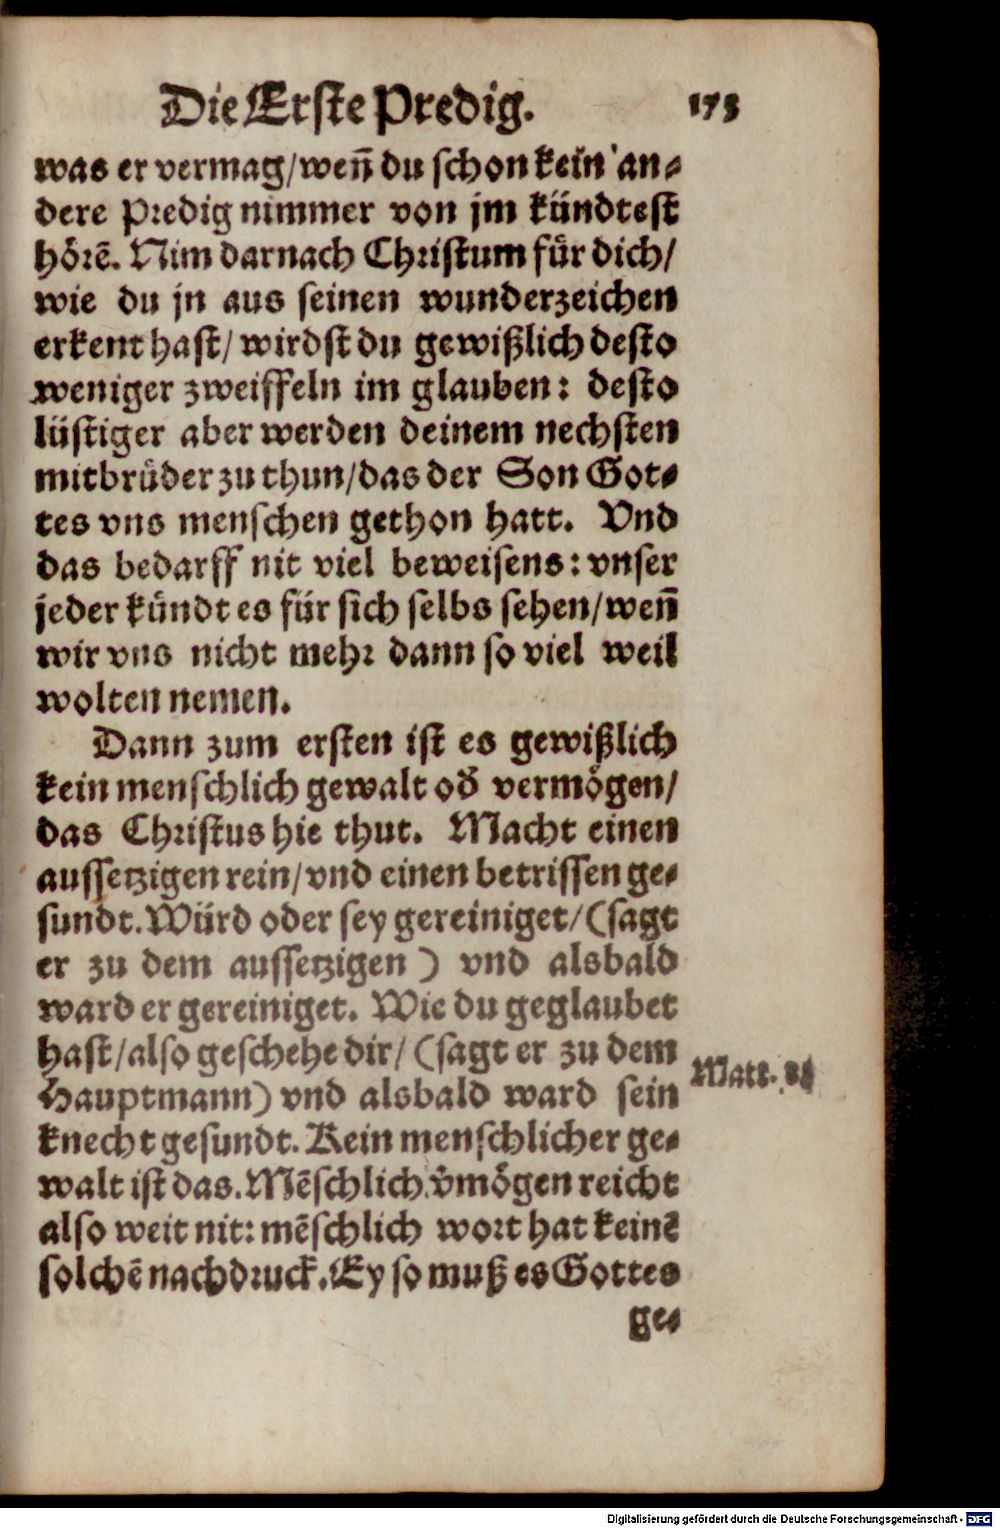 Die Erste Predig. 173
was er vermag/ weñ du schon kein an-
dere Predig nimmer von jm kündtest
hörẽ. Nim darnach Christum für dich/
wie du jn aus seinen wunderzeichen
erkent hast/ wirdst du gewißlich desto
weniger zweiffeln im glauben: desto
lüstiger aber werden deinem nechsten
mitbrüder zu thun/ das der Son Got-
tes vns menschen gethon hatt. Vnd
das bedarff nit viel beweisens: vnser
jeder kündt es für sich selbs sehen/ weñ
wir vns nicht mehr dann so viel weil
wolten nemen.
Dann zum ersten ist es gewißlich
kein menschlich gewalt od̃ vermögen/
das Christus hie thut. Macht einen
aussetzigen rein/ vnd einen betrissen ge-
sundt. Würd oder sey gereiniget/ (sagt
er zu dem aussetzigen) vnd alsbald
ward er gereiniget. Wie du geglaubet
hast/ also geschehe dir/ (sagt er zu dem
Hauptmann) vnd alsbald ward sein
Matt. 8
knecht gesundt. Kein menschlicher ge-
walt ist das. Mẽschlich ṽmögen reicht
also weit nit: mẽschlich wort hat keinẽ
solchẽ nachdruck. Ey so muß es Gottes
ge-
Digitalisierung gefördert durch die Deutsche Forschungsgemeinschaft - DFG